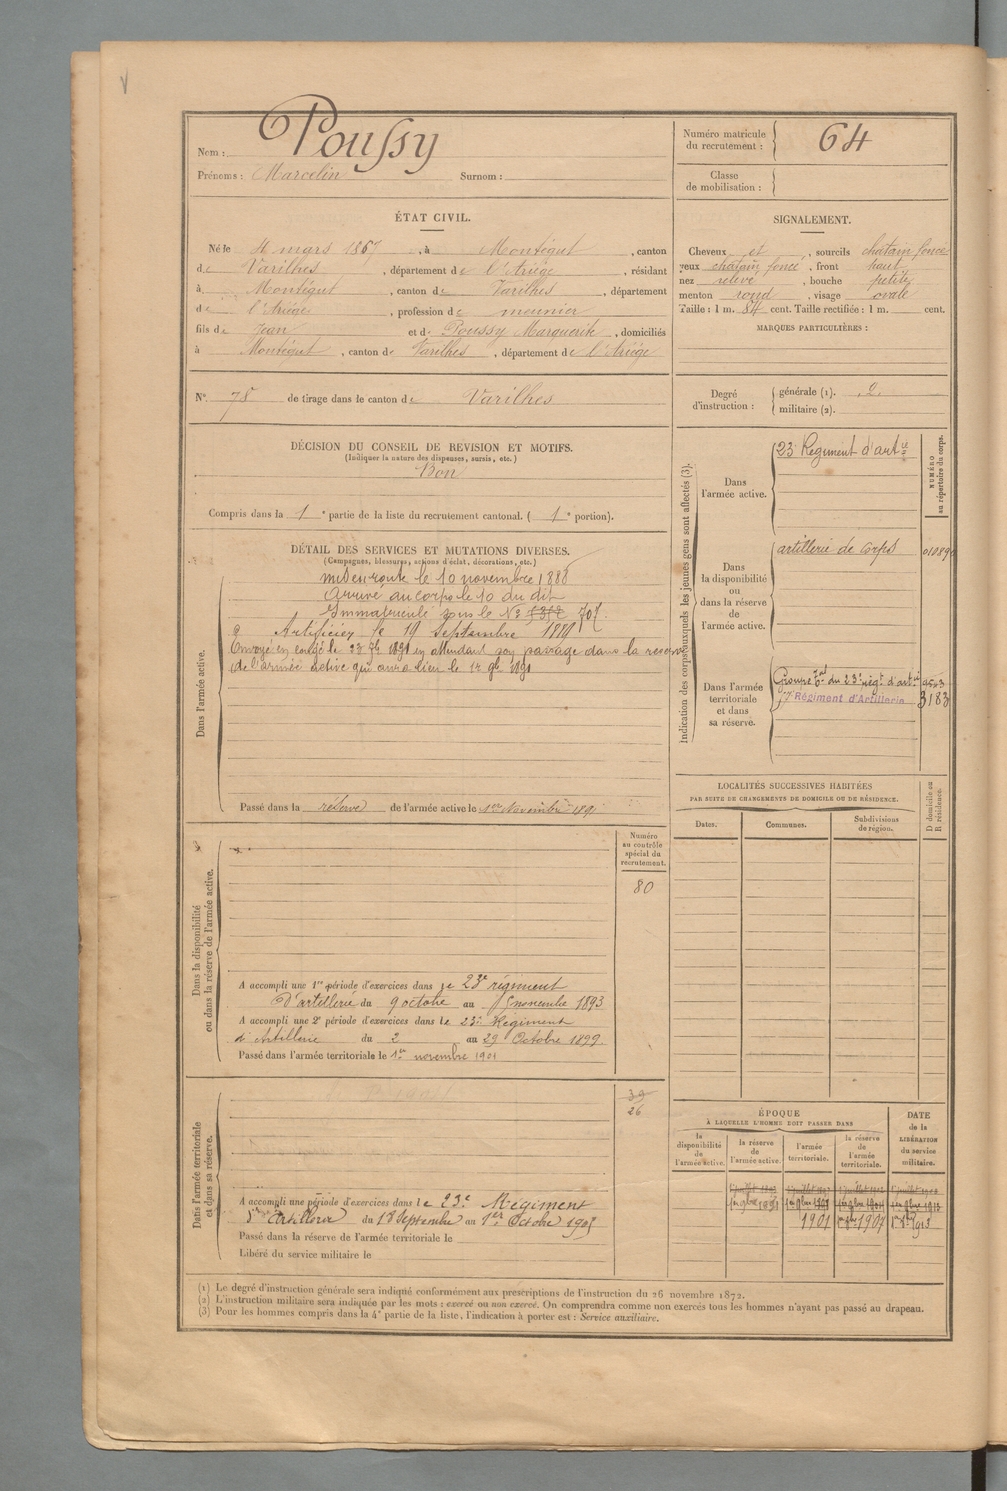 Nom : Poussy
Prénoms : Marcelin Surnom :
Numéro matricule du recrutement : 64
Classe de mobilisation :
ÉTAT CIVIL.
Né le 4 mars 1867, à Montégut, canton
de Varilhes, département de l'Ariège, résidant
à Montégut, canton de Varilhes, département
de l'Ariège, profession de meunier
fils de Jean et de Poussy Marguerite, domiciliés
à Montégut, canton de Varilhes, département de l'Ariège
SIGNALEMENT.
Cheveux et, sourcils chatain foncé
yeux chatain foncé, front haut
nez relevé, bouche petite
menton rond, visage ovale
Taille : 1 m. 84 cent. Taille rectifiée : 1 m. cent.
MARQUES PARTICULIÈRES :
N° 78 de tirage dans le canton de Varilhes
Degré d'instruction : générale (1). 2.
militaire (2).
DÉCISION DU CONSEIL DE REVISION ET MOTIFS.
(Indiquer la nature des dispenses, sursis, etc.)
Bon
Compris dans la 1e partie de la liste du recrutement cantonal. (1e portion).
DÉTAIL DES SERVICES ET MUTATIONS DIVERSES.
(Campagnes, blessures, actions d'éclat, décorations, etc.)
Dans l'armée active.
mis en route le 10 novembre 1888
arrivé au corps le 10 du dit
Immatriculé sous le N° 707.
Artificier le 19 Septembre 1889
Envoyé en congé le 23 7bre 1891 en attendant son passage dans la réserve
de l'armée active qui aura lieu le 1er 9bre 1891
Passé dans la réserve de l'armée active le 1er Novembre 1891
Indication des corps auxquels les jeunes gens sont affectés (3).
NUMÉRO au répertoire du corps.
Dans l'armée active.
23e Régiment d'artie
Dans la disponibilité ou dans la réserve de l'armée active.
artillerie de Corps
Dans l'armée territoriale et dans sa réserve.
Groupe tal du 23e régt d'artie
17e Régiment d'Artillerie 3183
LOCALITÉS SUCCESSIVES HABITÉES
PAR SUITE DE CHANGEMENTS DE DOMICILE OU DE RÉSIDENCE.
Dates. Communes. Subdivisions de région. D domicile ou R résidence.
Dans la disponibilité ou dans la réserve de l'armée active.
Numéro au contrôle spécial du recrutement.
80
A accompli une 1re période d'exercices dans le 23e régiment
d'artillerie du 9 octobre au 5 novembre 1893
A accompli une 2e période d'exercices dans le 23e Régiment
d'Artillerie du 2 au 29 Octobre 1899.
Passé dans l'armée territoriale le 1er novembre 1901
Dans l'armée territoriale et dans sa réserve.
39
26
A accompli une période d'exercices dans le 23e Régiment
d'Artillerie du 18 Septembre au 1er Octobre 1905
Passé dans la réserve de l'armée territoriale le
Libéré du service militaire le
ÉPOQUE
À LAQUELLE L'HOMME DOIT PASSER DANS
la disponibilité de l'armée active. la réserve de l'armée active. l'armée territoriale. la réserve de l'armée territoriale.
DATE de la LIBÉRATION du service militaire.
1er 9bre 1891
1901 1907 1913
(1) Le degré d'instruction générale sera indiqué conformément aux prescriptions de l'instruction du 26 novembre 1872.
(2) L'instruction militaire sera indiquée par les mots : exercé ou non exercé. On comprendra comme non exercés tous les hommes n'ayant pas passé au drapeau.
(3) Pour les hommes compris dans la 4e partie de la liste, l'indication à porter est : Service auxiliaire.